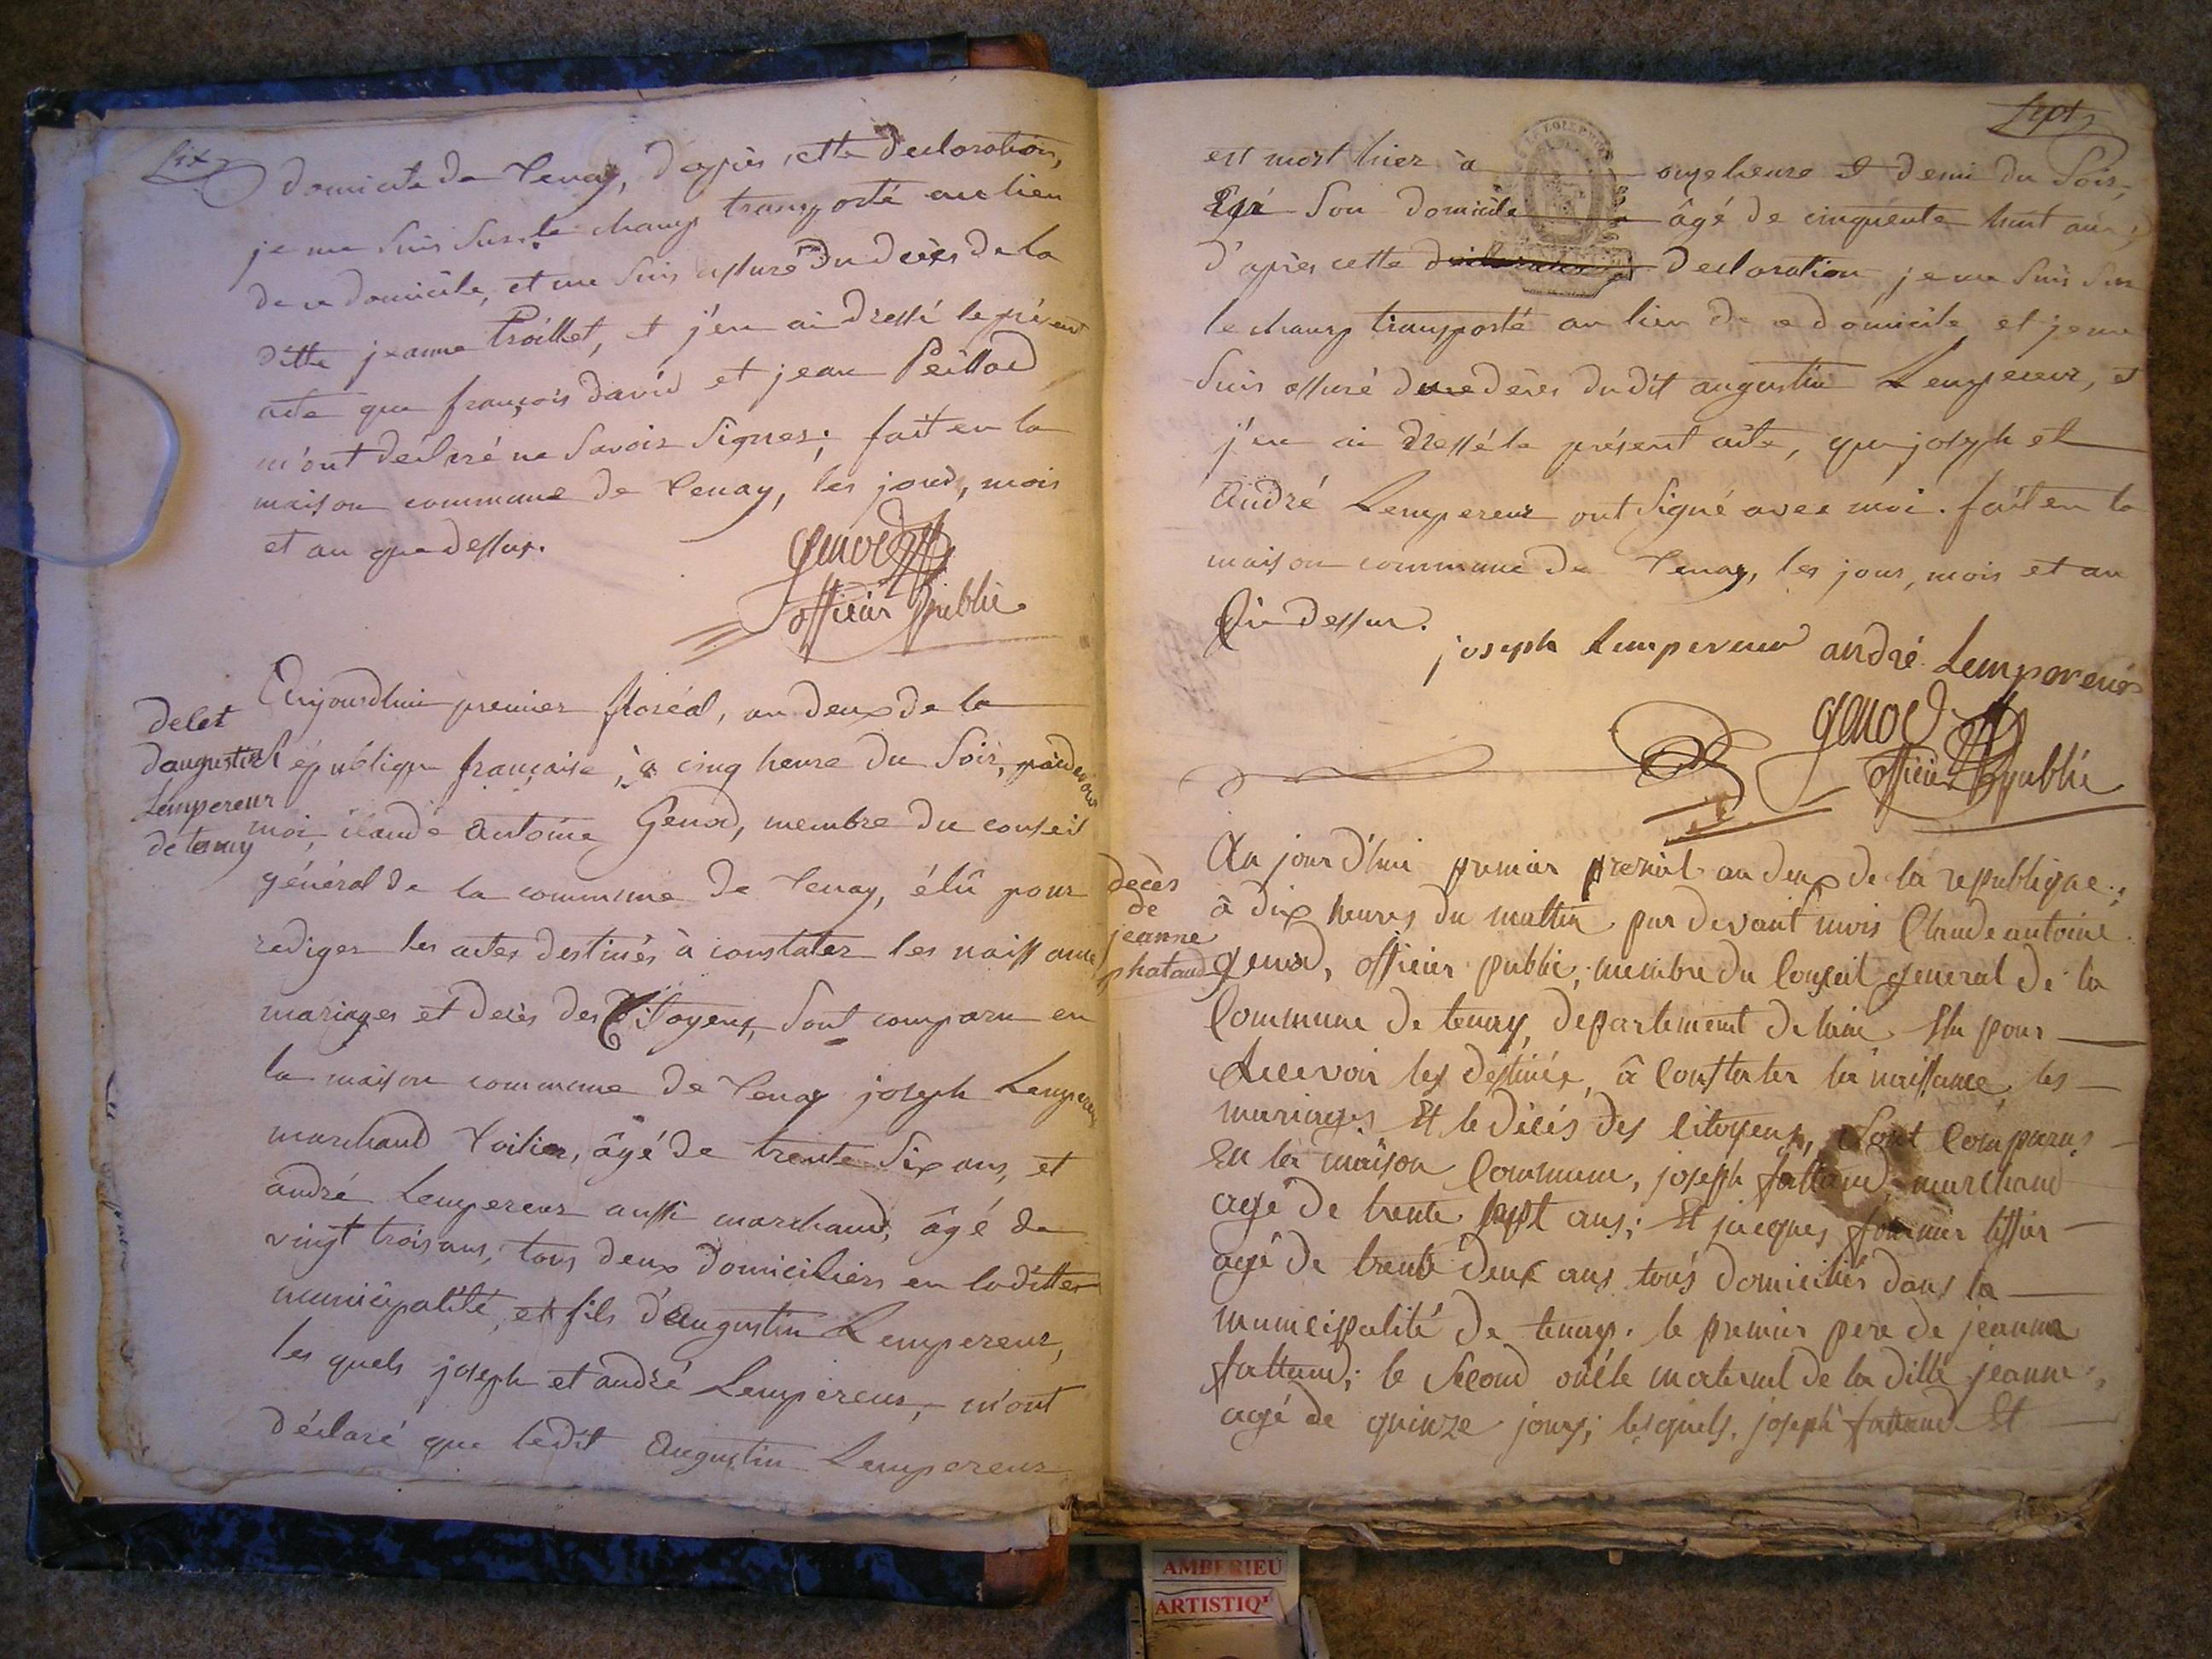 Six
domicile de Tenay, d'après cette declaration,
je me suis sur le champ transporté au lieu
de ce domicile, et me suis assuré du decès de la
ditte jeanneProillet, et j'en ai dressé le présent
acte que françois david et jean Peillod
m'ont declaré ne savoir signer; fait en la
maison commune de Tenay, les jour, mois
et an que dessus.
genod
officier public
decet
d'augustin
Lempereur
de tenay
Aujourdhui premier floréal, an deux de la
République française, à cinq heure du soir, pardevant
moi, claude antoine Genod, membre du conseil
général de la commune de Tenay, élû pour
rediger les actes destinés à constater les naissances
mariages et decès des Citoyens, sont comparu en
la maison commune de Tenay joseph Lempereur
marchand toilier, âgé de trente six ans, et
andré Lempereur aussi marchand, âgé de
vingt trois ans, tous deux domiciliers en laditte
municipalité, et fils d'augustin Lempereur,
les quels joseph et andré Lempereur, m'ont
déclaré que ledit Augustin Lempereur
Sept
est mort hier à onze heure et demi du soir,
son domicile âgé de cinquente huit ans,
d'après cette declaration je me suis sur
le champ transporté au lieu de ce domicile et je me
suis assuré du decès dudit augustin Lempereur, et
j'en ai dressé le présent acte, que joseph et
André Lempereur ont signé avec moi. fait en la
maison commune de Tenay, les jour, mois et an
que dessus.
joseph Lempereur andré Lempereur
genod
officier public
decès
de
jeanne
phataud
Au jour d'hui premier prerial an deux de la republique,
à dix heures du mattin par devant mois Claude antoine
genod, officier public, membre du Conseil general de la
Commune de tenay, departement de lain élu pour
recevoir les destinés, à Constater la naissance, les
mariages Et le décés des citoyens, sont Comparus
En la maison Commune, joseph fattaud, marchand
agé de trente sept ans; Et jacques fournier tissier
agé de trente deux ans tous domiciliés dans la
municipalité de tenay. le premier pere de jeanne
fattaud; le second oncle maternel de la ditte jeanne,
agé de quinze jours; lesquels, joseph fattaud Et
AMBERIEU
ARTISTIQ'